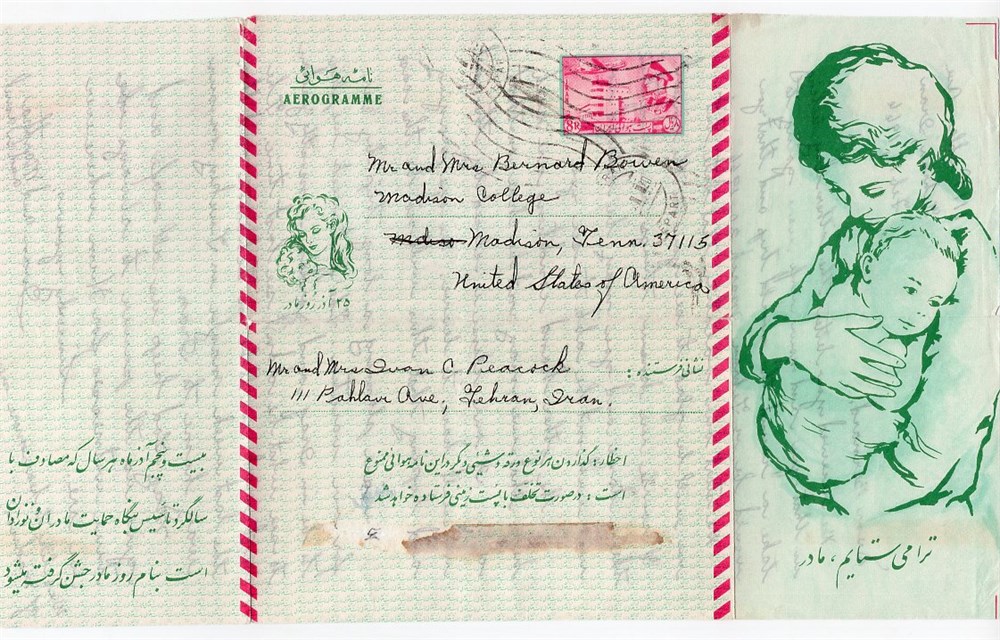 نامه هوائی
AEROGRAMME
8R
Mr and Mrs Bernard Bowen
Madison College
Madison, Tenn. 37115
United States of America
۲۵ آذر روز مادر
Mr and Mrs Ivan C Peacock
نشانی فرستنده :
111 Pahlavi Ave, Tehran, Iran.
اخطار : گذاردن هر نوع ورقه و شیئی دیگر در این نامه هوائی ممنوع
است ؛ در صورت تخلف با پست زمینی فرستاده خواهد شد
بیست و پنجم آذر ماه هر سال که مصادف با
سالگرد تأسیس بنگاه حمایت مادران و نوزادان
است بنام روز مادر جشن گرفته میشود
ترا می ستایم ، مادر